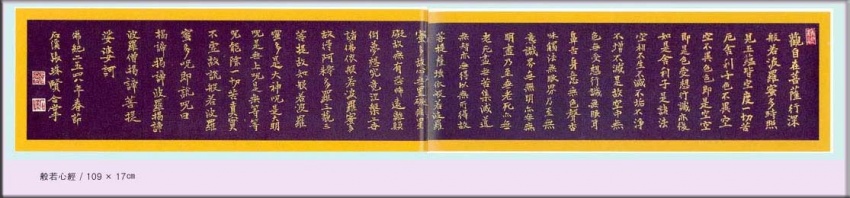 觀自在菩薩行深
般若波羅蜜多時照
見五蘊皆空度一切苦
厄舍利子色不異空
空不異色色即是空空
即是色受想行識亦復
如是舍利子是諸法
空相不生不滅不垢不淨
不增不減是故空中無
色無受想行識無眼耳
鼻舌身意無色聲香
味觸法無眼界乃至無
意識界無無明亦無無
明盡乃至無老死亦無
老死盡無苦集滅道
無智亦無得以無所得故
菩提薩埵依般若波羅
蜜多故心無罣礙無罣
礙故無有恐怖遠離顚
倒夢想究竟涅槃三世
諸佛依般若波羅蜜多
故得阿耨多羅三藐三
菩提故知般若波羅
蜜多是大神呪是大明
呪是無上呪是無等等
呪能除一切苦眞實
不虛故說般若波羅
蜜多呪即說呪曰
揭諦揭諦波羅揭諦
波羅僧揭諦菩提
娑婆訶
年春節
般若心經 / 109 × 17㎝